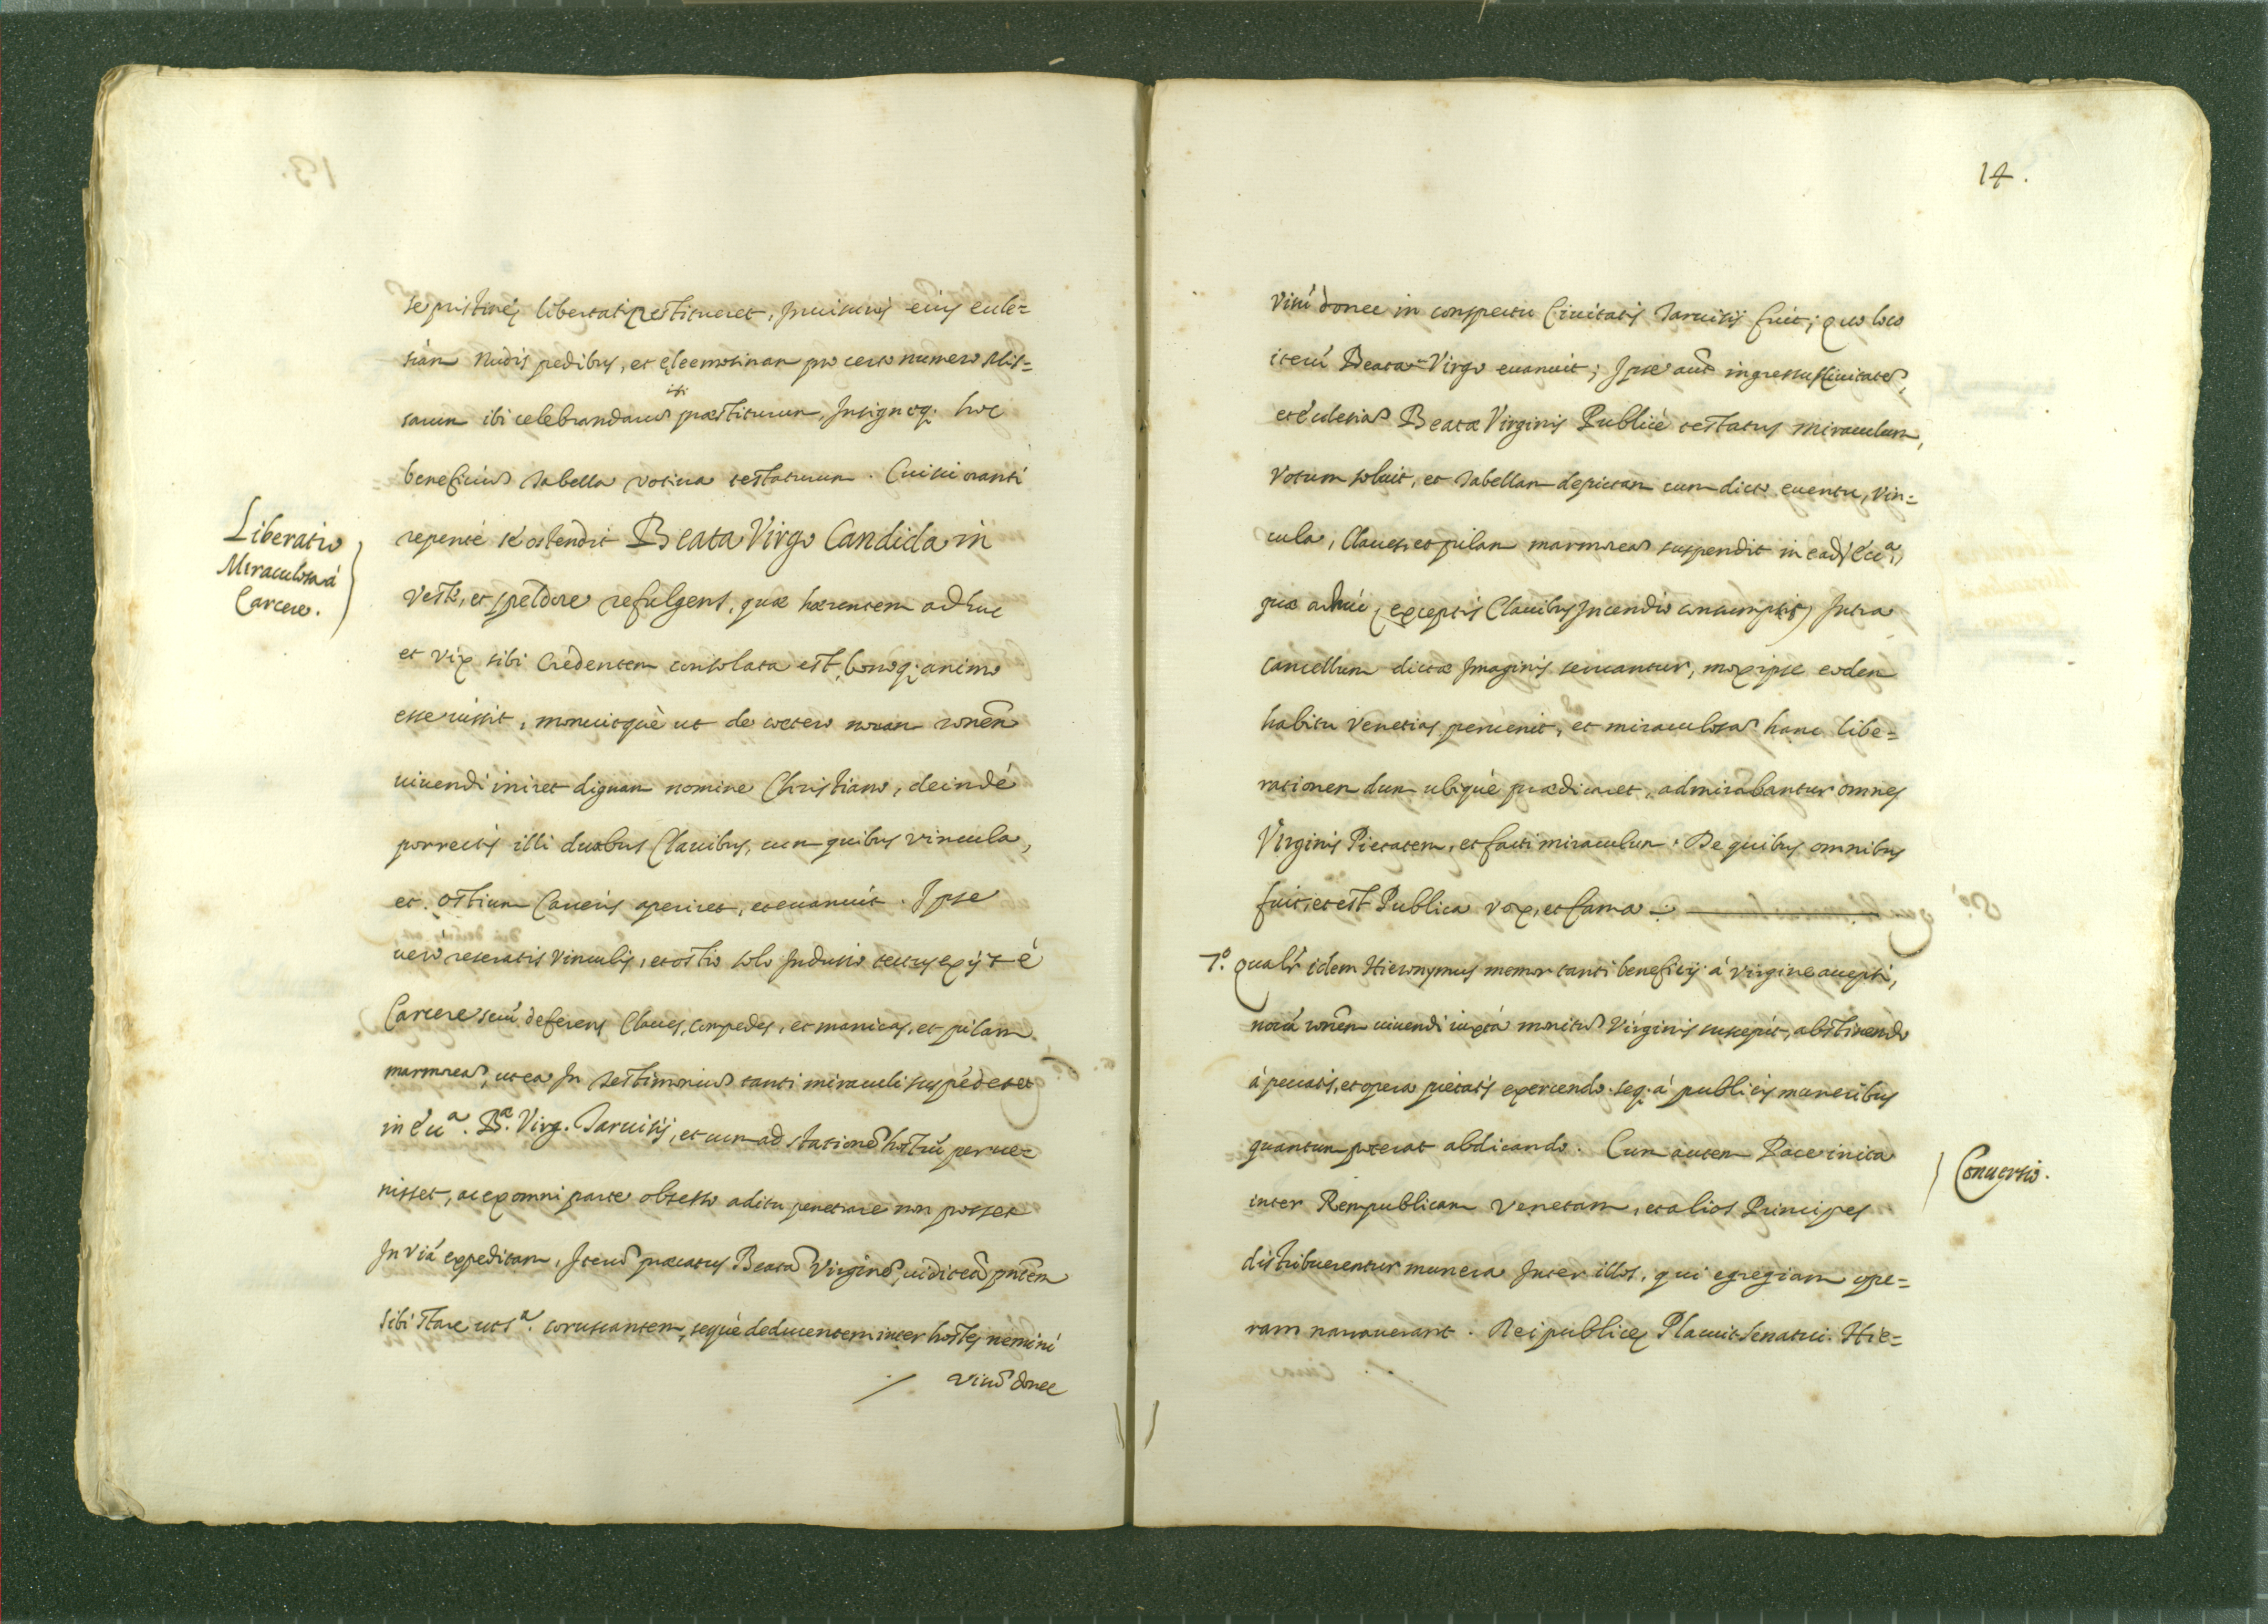 se pristinę libertati restitueret, Inuisurus eius eccle=
siam Nudis pedibus, et eleemosinam pro certo numero Mis=
sarum ibi celebrandarũ præstiturum, Insignoq. hoc
beneficiũ Tabella votiua testaturum. Cui sic oranti
Liberatio
Miraculosa á
Carcere.
repenté se ostendit Beata Virgo Candida in
Veste, et splẽdore refulgens, quæ hærentem adhuc
et vix sibi Credentem consolata est, bonoq; animo
esse iussit, monuitquè ut de cœtero nouam rõnẽm
uiuendi iniret dignam nomine Christiano, deindé
porrectis illi duabus Clauibus, cum quibus vincula,
et ostium Carceris aperiret, et euanuit. Ipse
uero reseratis Vinculis, et ostio solo Indusio tectus exijt é
Carcere secũ deferens Claues, Compedes, et manicas, et pilam
marmoreã, ut ea In Testimoniũ tanti miraculi suspẽderet
in Ecc.ª B.ª Virg. Taruisij, et cum ad stationẽ hostiũ perue=
nisset, ac ex omni parte obsesso aditu penetrare non posset
In viã expeditam, Iterũ præcatus Beatã Virginẽ, uidit eã pñtem
sibi stare ut s.ª coruscantem, sequè deducentem inter hostes nemini
visũ donec
14.
Visũ donec in conspectu Ciuitatis Taruisij fuit; quo loco
iterũ Beata Virgo euanuit; Ipse aut̃ ingressus Ciuitatẽ,
et ecclesiã Beatæ Virginis Publicé testatus miraculum,
Votum soluit, et Tabellam depictam cum dicto euentu, vin=
cula, Claues, et pilam marmoreã suspendit in eadẽ Ecc.ª,
quæ adhúc (exceptis Clauibus Incendio consumptis) Intra
Cancellum dictæ Imaginis seruantur, mox ipse eodem
habitu Venetias peruenit, et miraculosã hanc libe=
rationem dum ubiquè prædicaret, admirabantur omnes
Virginis Pietatem, et facti miraculum. De quibus omnibus
fuit, et est Publica vox, et fama
7.º Qualr̃ idem Hieronymus memor tanti beneficij á Virgine accepti,
nouã rõnẽm uiuendi iuxtá monitũ Virginis suscepit, abstinendo
á peccatis, et opera pietatis exercendo. seq. á publicis muneribus
quantum poterat abdicando. Cum autem Pace inita
Conuersio.
inter Rempublicam Venetam, et alios Principes
distribuerentur munera Inter illos, qui egregiam ope=
ram nauauerant. Reipublicę Placuit Senatui. Hie=